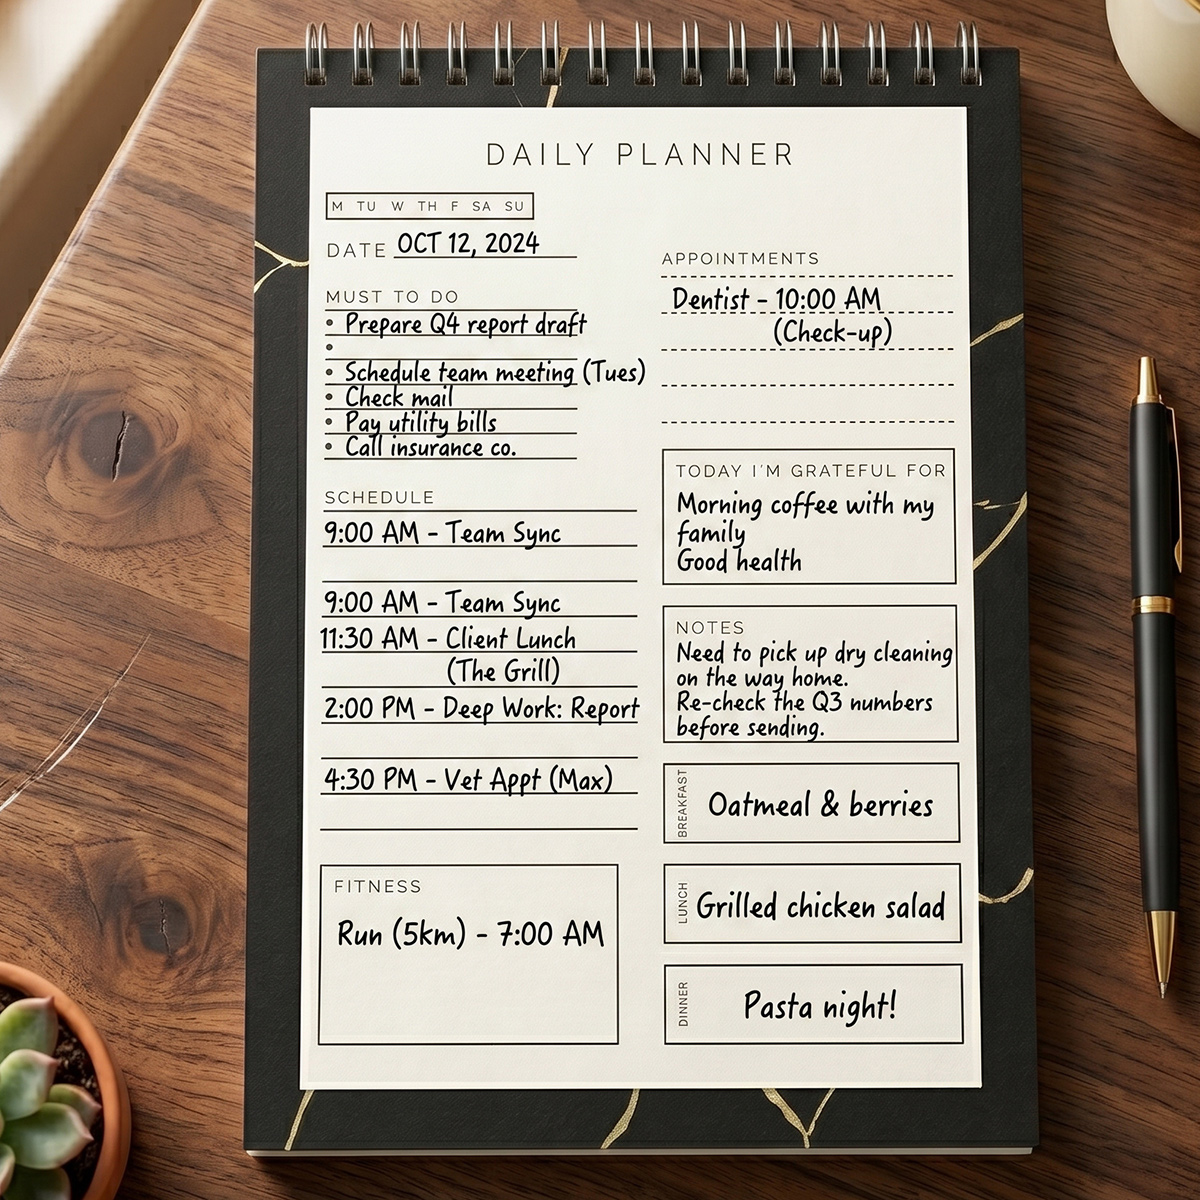 DAILY PLANNER
M TU W TH F SA SU
DATE OCT 12, 2024
MUST TO DO
• Prepare Q4 report draft
•
• Schedule team meeting (Tues)
• Check mail
• Pay utility bills
• Call insurance co.
SCHEDULE
9:00 AM - Team Sync
9:00 AM - Team Sync
11:30 AM - Client Lunch
(The Grill)
2:00 PM - Deep Work: Report
4:30 PM - Vet Appt (Max)
FITNESS
Run (5km) - 7:00 AM
APPOINTMENTS
Dentist - 10:00 AM
(Check-up)
TODAY I'M GRATEFUL FOR
Morning coffee with my
family
Good health
NOTES
Need to pick up dry cleaning
on the way home.
Re-check the Q3 numbers
before sending.
BREAKFAST
Oatmeal & berries
LUNCH
Grilled chicken salad
DINNER
Pasta night!